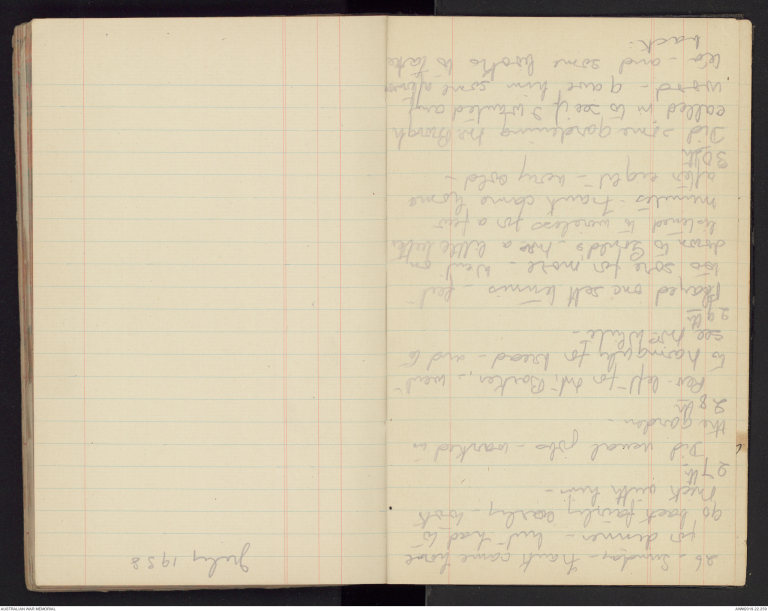 July 1938
26 - Sunday - Frank came home
for dinner - but had to
go back fairly early - took
Mick with him -
27th
Did usual jobs - worked in
the garden -
28th
Rev. left for Mt Barker, - went
to Narrogully for bread - and to
see Mrs White -
29th
Played one sett tennis - feet
too sore for more - Went on
down to Gould's - for a little later
listened to wireless for a few
minutes - Frank came home
after eight - very cold -
30th
Did some gardening the
called in to see if I wanted any
wood - gave him some
tea - and some books to take
back.
AUSTRALIAN WAR MEMORIAL